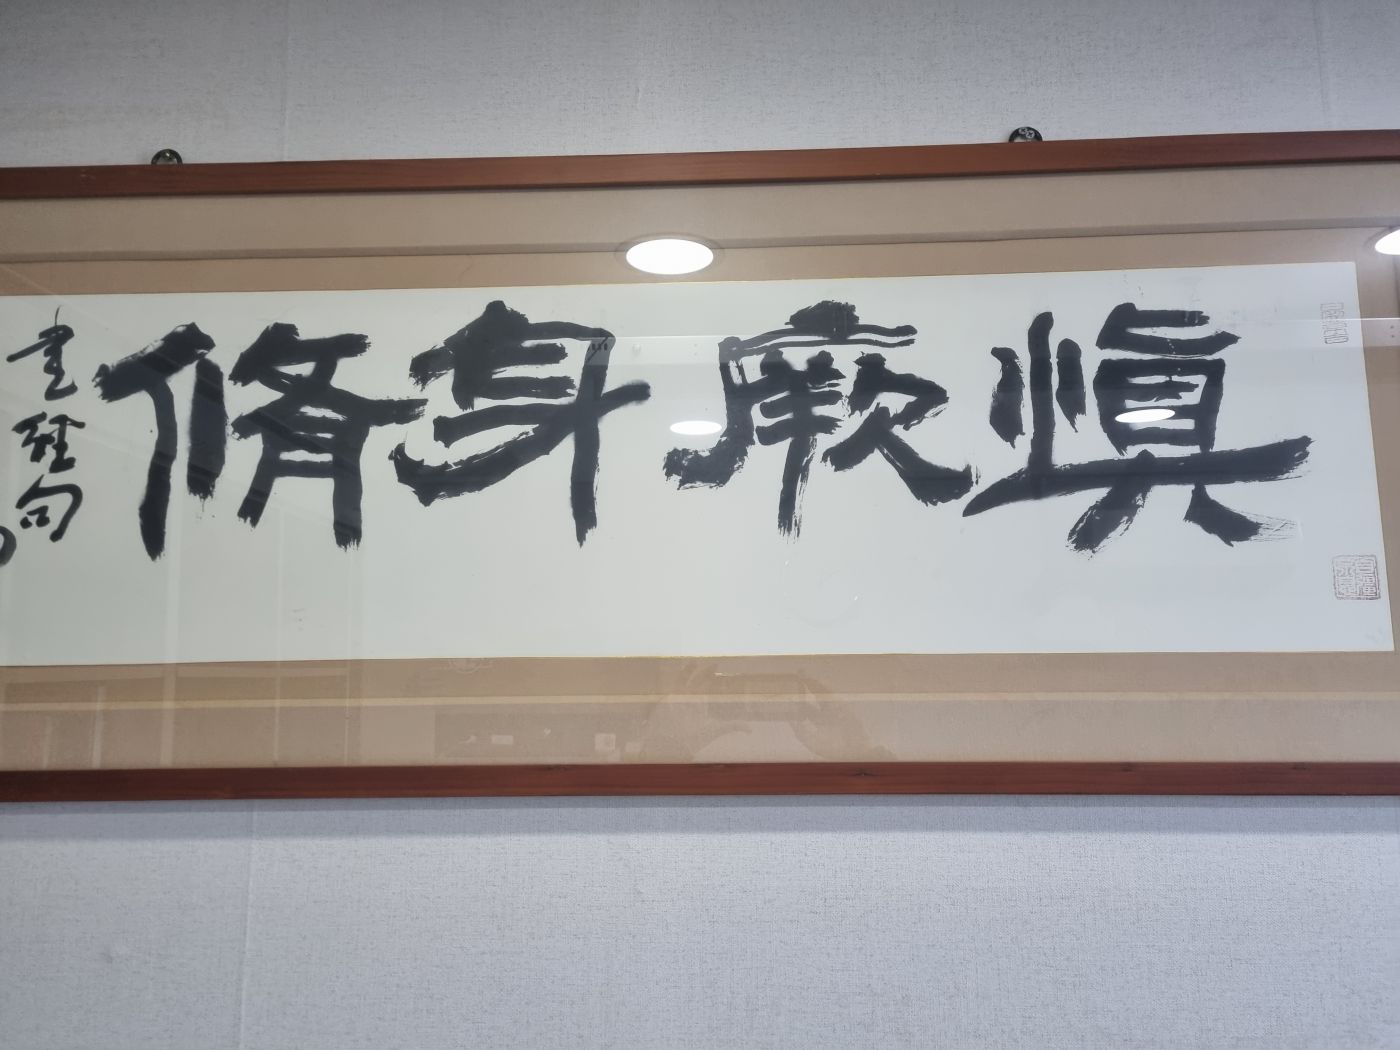 慎厥身脩
書經句